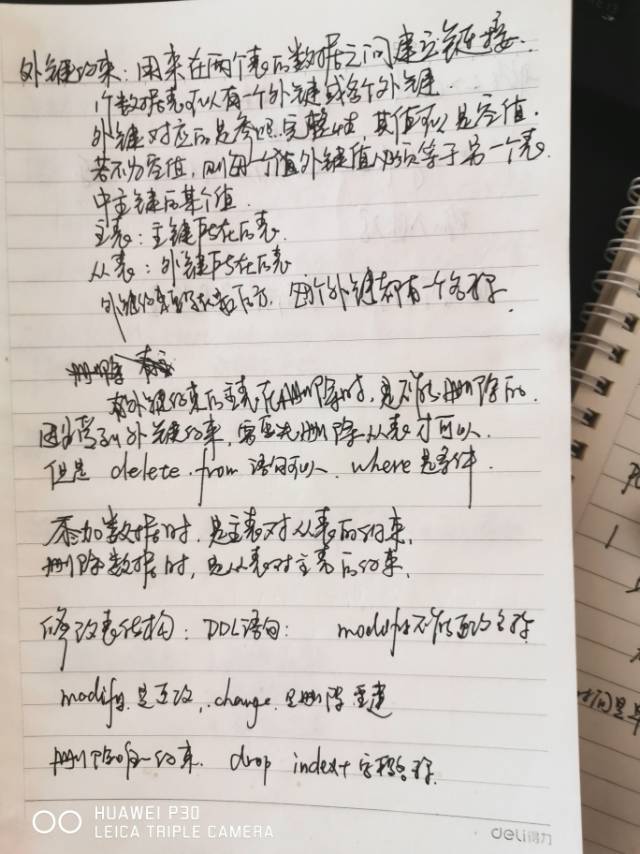 外键约束：用来在两个表的数据之间建立链接.
1个数据表可以有一个外键或多个外键.
外键对应的是参照完整性，其值可以是空值.
若不为空值，则每一个值外键值必须等于另一个表
中主键的某个值.
主表：主键所在的表.
从表：外键所在的表
外键约束 每个外键都有一个名称.
删除
有外键约束的主表在删除时，是不能删除的.
因为受到外键约束，需要先删除从表才可以.
但是 delete from 语句可以. where是条件.
添加数据时，是主表对从表的约束.
删除数据时，是从表对主表的约束.
修改表结构：DDL语句： modify不能更改名称
modify 是直改，change 是删除重建
删除唯一约束. drop index+字段名称.
HUAWEI P30
LEICA TRIPLE CAMERA
deli得力
时间是